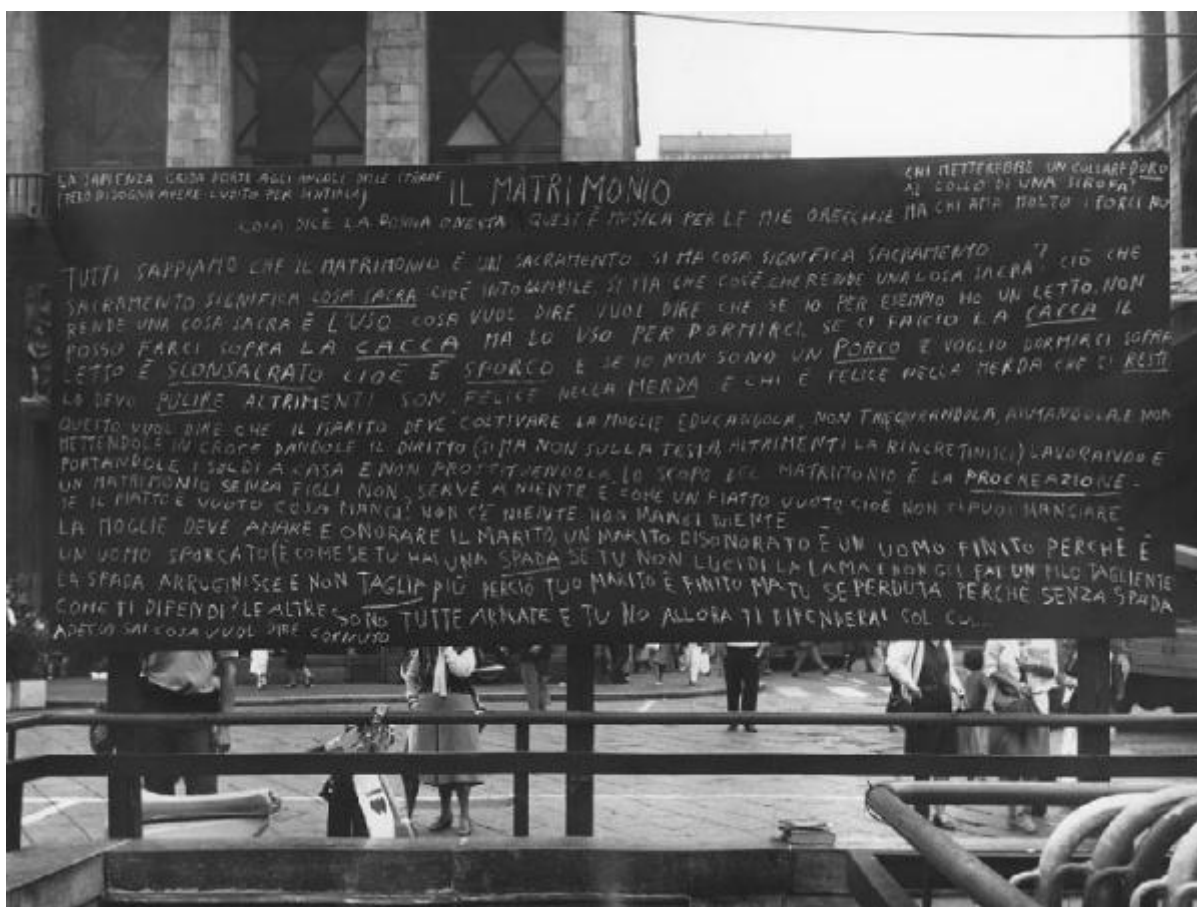 LA SAPIENZA GRIDA FORTE AGLI ANGOLI DELLE STRADE
(PERO BISOGNA AVERE L'UDITO PER SENTIRLA)
IL MATRIMONIO
CHI METTEREBBE UN COLLARE D'ORO
AL COLLO DI UNA SCROFA?
MA CHI AMA MOLTO I PORCI
COSA DICE LA DONNA ONESTA QUEST'È MUSICA PER LE MIE ORECCHIE
TUTTI SAPPIAMO CHE IL MATRIMONIO È UN SACRAMENTO SI MA COSA SIGNIFICA SACRAMENTO ? CIÒ CHE
SACRAMENTO SIGNIFICA COSA SACRA CIOÈ INTOCCABILE SI MA CHE COS'È CHE RENDE UNA COSA SACRA
RENDE UNA COSA SACRA È L'USO COSA VUOL DIRE VUOL DIRE CHE SE IO PER ESEMPIO HO UN LETTO, NON
POSSO FARCI SOPRA LA CACCA MA LO USO PER DORMIRCI. SE CI FACCIO LA CACCA IL
LETTO È SCONSACRATO CIOÈ È SPORCO E SE IO NON SONO UN PORCO E VOGLIO DORMIRCI SOPRA
LO DEVO PULIRE ALTRIMENTI SON FELICE NELLA MERDA E CHI È FELICE NELLA MERDA CHE CI RESTI
QUESTO VUOL DIRE CHE IL MARITO DEVE COLTIVARE LA MOGLIE EDUCANDOLA, NON AIUTANDOLA E NON
METTENDOLE IN CROCE DANDOLE IL DIRITTO (SI MA NON SULLA TESTA, ALTRIMENTI LA RINCRETINISCI) LAVORANDO E
PORTANDOLE I SOLDI A CASA E NON PROSTITUENDOLA LO SCOPO DEL MATRIMONIO È LA PROCREAZIONE -
UN MATRIMONIO SENZA FIGLI NON SERVE A NIENTE È COME UN PIATTO VUOTO CIOÈ NON CI PUOI MANGIARE
SE IL PIATTO È VUOTO COSA MANGI? NON C'È NIENTE NON MANGI NIENTE
LA MOGLIE DEVE AMARE E ONORARE IL MARITO, UN MARITO DISONORATO È UN UOMO FINITO PERCHÈ È
UN UOMO SPORCATO (È COME SE TU HAI UNA SPADA SE TU NON LUCIDI LA LAMA E NON GLI FAI UN FILO TAGLIENTE
LA SPADA ARRUGINISCE E NON TAGLIA PIÙ PERCIÒ TUO MARITO È FINITO MA TU SE PERDUTA PERCHÈ SENZA SPADA
COME TI DIFENDI? LE ALTRE SONO TUTTE ARMATE E TU NO ALLORA TI DIFENDERAI COL CU...
ADESSO SAI COSA VUOL DIRE CORNUTO